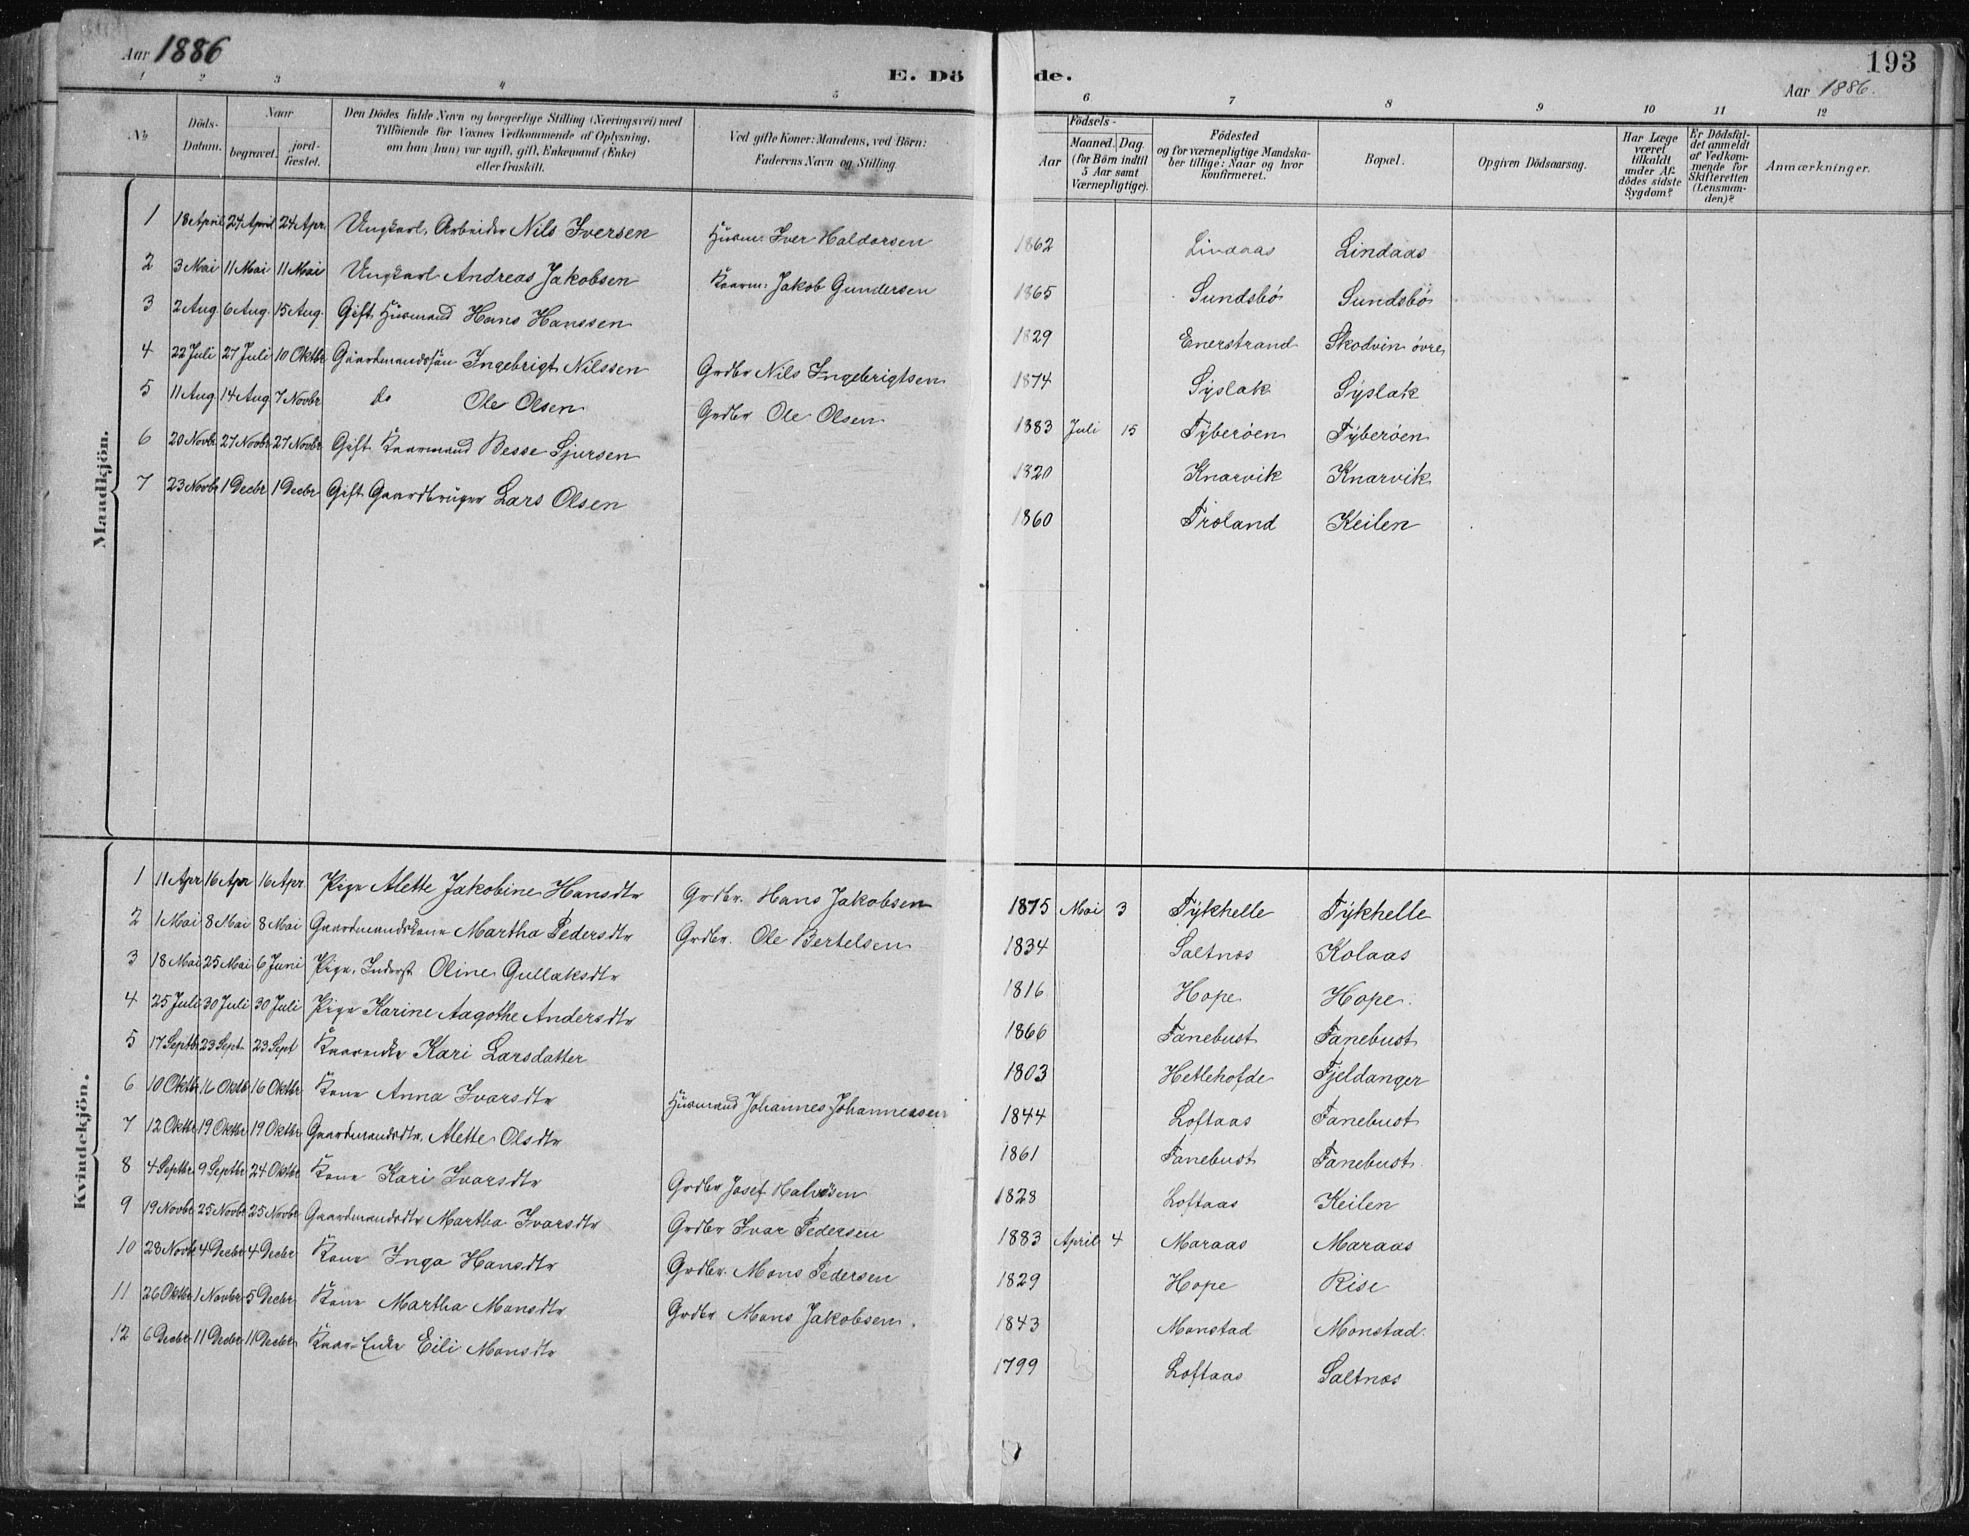 Aar 1886
E. Dö de.
193
Aar 1886.
1 2 3 4 5 6 7 8 9 10 11 12
No
Döds-Datum.
Naar
begravet.
jord-fæstet.
Den Dödes fulde Navn og borgerlige Stilling (Næringsvei) med
Tilföiende for Voxnes Vedkommende af Oplysning,
om han (hun) var ugift, gift, Enkemand (Enke)
eller fraskilt.
Ved gifte Koner: Mandens, ved Börn:
Faderens Navn og Stilling
Födsels-
Aar
Maaned. Dag.
(for Börn indtil
5 Aar samt
Værnepligtige).
Födested
og for værnepligtige Mandska-
ber tillige: Naar og hvor
Konfirmeret.
Bopæl.
Opgiven Dödsaarsag.
Har Læge
været
tilkaldt
under Af-
dödes sidste
Sygdom?
Er Dödsfal-
det anmeldt
af Vedkom-
mende for
Skifteretten
(Lensman-
den)?
Anmærkninger.
Mandkjön.
1 18 April 24 April 24 Apr. Ungkarl, Arbeider Nils Iversen Husm. Iver Haldorsen 1862 Lindaas Lindaas
2 3 Mai 11 Mai 11 Mai Ungkarl Andreas Jakobsen Kaarm. Jakob Gundersen 1865 Sundsbö Sundsbö
3 2 Aug. 6 Aug. 15 Aug. Gift Husmand Hans Hanssen 1829 Enerstrand Skodvin övre
4 22 Juli 27 Juli 10 Oktbr Gaardmandssön Ingebrigt Nilssen Grdbr Nils Ingebrigtsen 1874 Syslak Syslak
5 11 Aug 14 Aug 7 Novbr do Ole Olsen Grdbr Ole Olsen 1883 Juli 15 Tyberöen Tyberöen
6 20 Novbr 27 Novbr 27 Novbr Gift Kaarmand Besse Sjursen 1820 Knarvik Knarvik
7 23 Novbr 1 Decbr 1 Decbr Gift Gaardbruger Lars Olsen 1860 Troland Keilen
Kvindekjön.
1 11 Apr 16 Apr 16 Apr. Pige Alette Jakobine Hansdtr Grdbr. Hans Jakobsen 1875 Mai 3 Tykhelle Tykhelle
2 1 Mai 8 Mai 8 Mai Gaardmandskone Martha Pedersdtr Grdbr. Ole Bertelsen 1834 Saltnes Kolaas
3 18 Mai 25 Mai 6 Juni Pige, Inderst Oline Gullaksdtr 1816 Hope Hope
4 25 Juli 30 Juli 30 Juli Pige Karine Aagothe Andersdtr 1866 Fanebust Fanebust
5 17 Septbr 23 Sept. 23 Sept Kaarenke Kari Larsdatter 1803 Hetlehofde Fjeldanger
6 10 Oktbr 16 Oktb 16 Oktbr Kone Anna Ivarsdtr Husmand Johannes Johannessen 1844 Loftaas Fanebust
7 12 Oktbr 19 Oktbr 19 Oktbr Gaardmandsdtr. Alette Olsdtr 1861 Fanebust Fanebust
8 4 Septbr 9 Septbr 24 Oktbr Kone Kari Ivarsdtr Grdbr Josef 1828 Loftaas Keilen
9 19 Novbr 25 Novbr 25 Novbr Gaardmandsdtr Martha Ivarsdtr Grdbr Ivar Pedersen 1883 April 4 Maraas Maraas
10 28 Novbr 4 Decbr 4 Decbr Kone Inga Hansdtr Grdbr. Mons Pedersen 1829 Hope Rise
11 26 Oktbr 1 Novbr 5 Decbr Kone Martha Monsdtr Grdbr Mons Jakobsen. 1843 Monstad Monstad
12 6 Decbr 11 Decbr 11 Decbr Kaar-Enke Eili Monsdtr 1799 Loftaas Saltnes